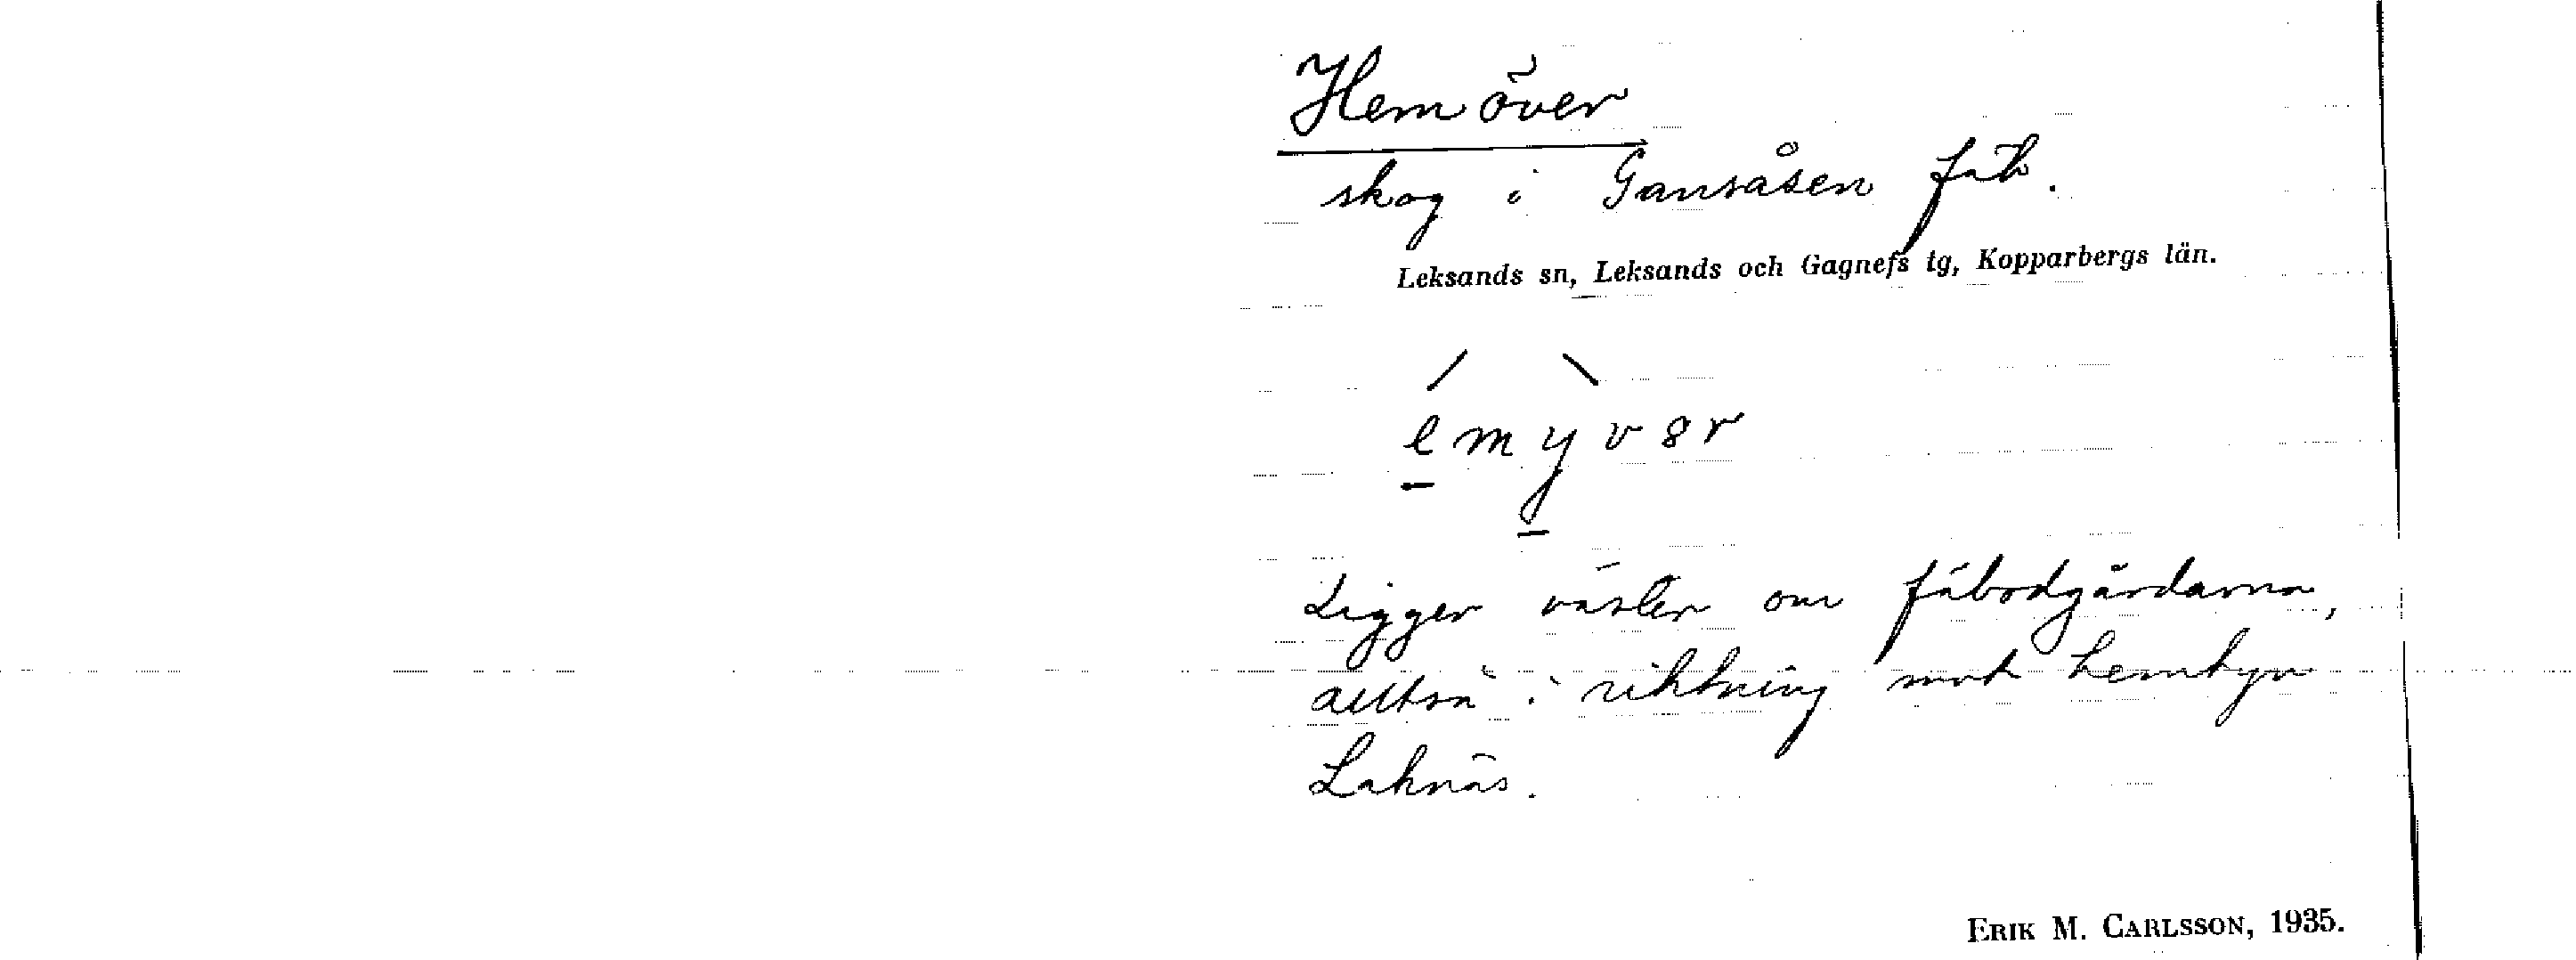 Hemöver
skog i Gansåsen fäb.
Leksands sn, Leksands och Gagnefs tg, Kopparbergs län.
e m y v ə r
Ligger väster om fäbodgårdarna,
alltså i riktning mot hembyn
Laknäs.
ERIK M. CARLSSON, 1935.